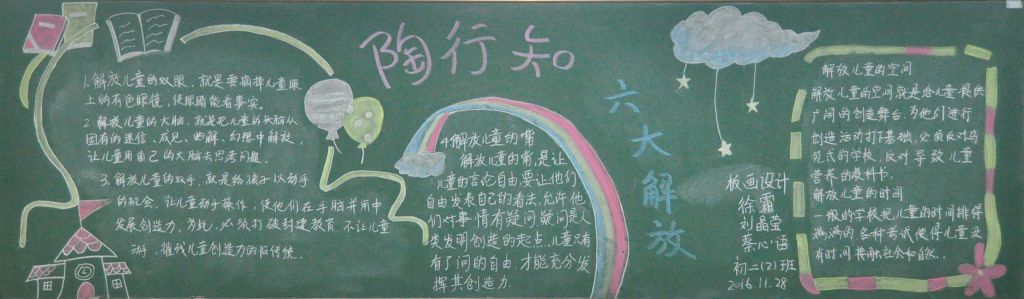 陶行知
六大解放
1.解放儿童的双眼,就是要摘掉儿童眼
上的有色眼镜,使眼睛能看事实。
2.解放儿童的大脑,就是把儿童的头脑从
固有的迷信、成见、曲解、幻想中解放,
让儿童用自己的大脑去思考问题.
3.解放儿童的双手,就是给孩子以动手
的机会,让儿童动手操作,使他们在手脑并用中
发展创造力,为此,必须打破封建教育不让儿童
动手,摧残儿童创造力的旧传统.
4.解放儿童的嘴
解放儿童的嘴,是让
儿童的言论自由要让他们
自由发表自己的看法,允许他
们对事情有疑问疑问是人
类发明创造的起点,儿童只有
有了问的自由,才能充分发
挥其创造力.
板画设计
徐霜
刘晶莹
蔡心语
初二(2)班
2016.11.28
解放儿童的空间
解放儿童的空间就是给儿童提供
广阔的创造舞台,为他们进行
创造活动打基础,必须反对鸟
笼式的学校,反对导致儿童
营养的教科书.
解放儿童的时间
一般的学校把儿童的时间排得
满满的各种考试使得儿童没
有时间接触社会和自然..